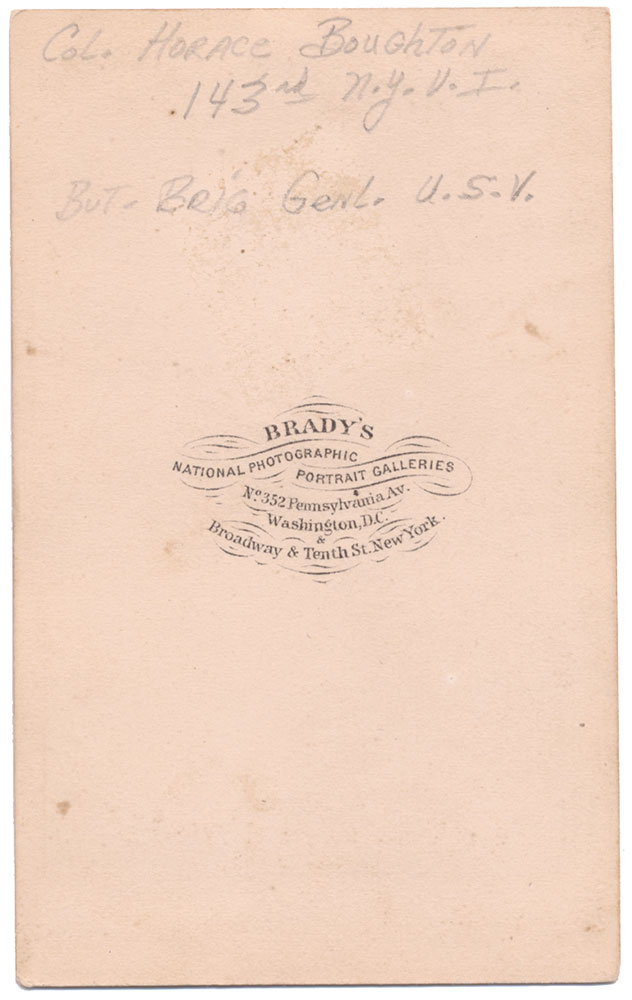 Col. Horace Boughton
143rd N.Y.V.I.
But. Brig Genl. U.S.V.
BRADY'S
NATIONAL PHOTOGRAPHIC
PORTRAIT GALLERIES
No. 352 Pennsylvania Av.
Washington, D.C.
&
Broadway & Tenth St. New York.